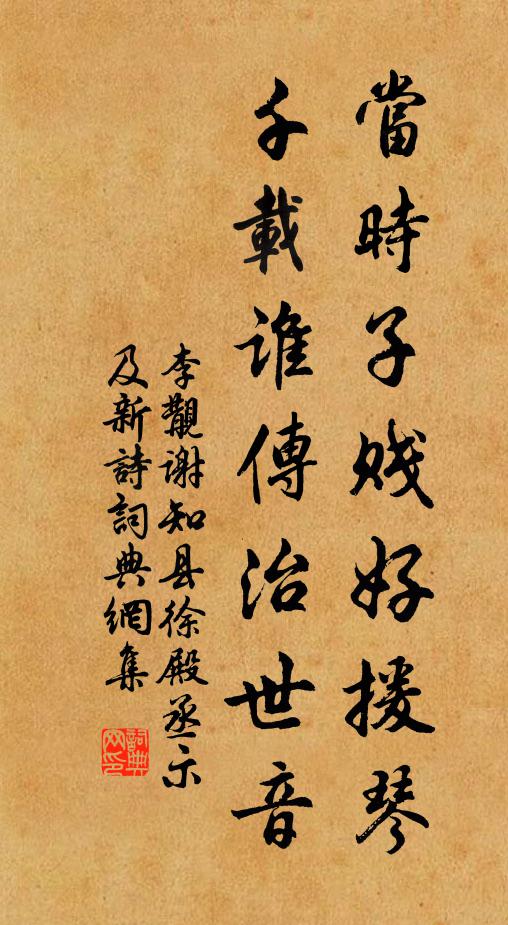 當時子賤好援琴
千載誰傳治世音
李覯谢知县徐殿丞示
及新詩詞典網集
詞典网印